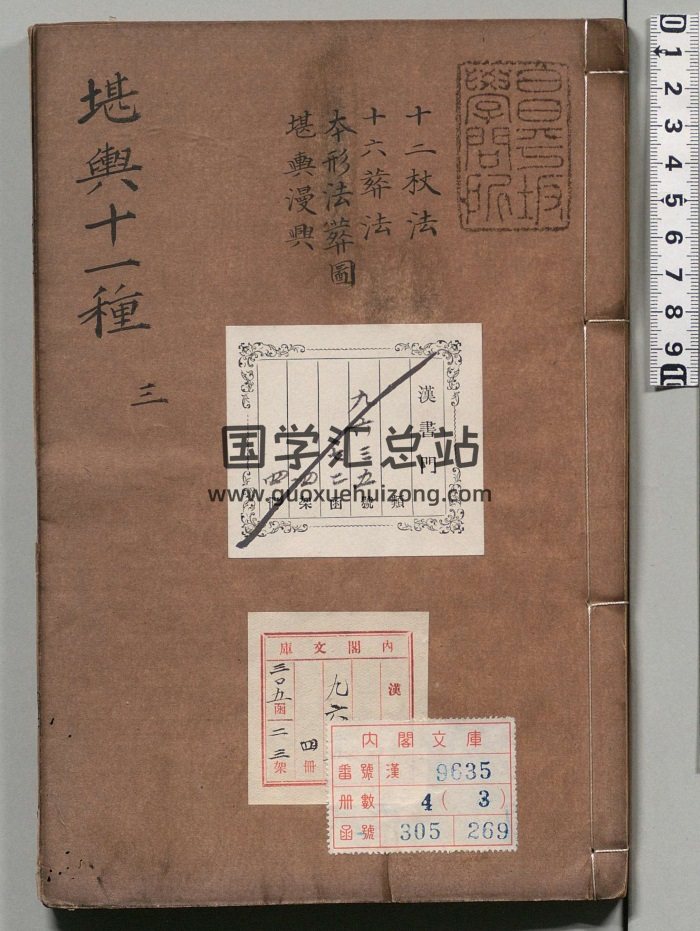 堪輿十一種
三
十二杖法
十六葬法
本形法葬圖
堪輿漫興
昌平坂
學問所
漢書門
類
九六三五號
二函
四架
四冊
国学汇总站
www.guoxuehuizong.com
內閣文庫
漢
九六
四冊
三〇五函
二三架
內閣文庫
番號 漢 9635
冊數 4 ( 3 )
函號 305 269
0 1 2 3 4 5 6 7 8 9 10